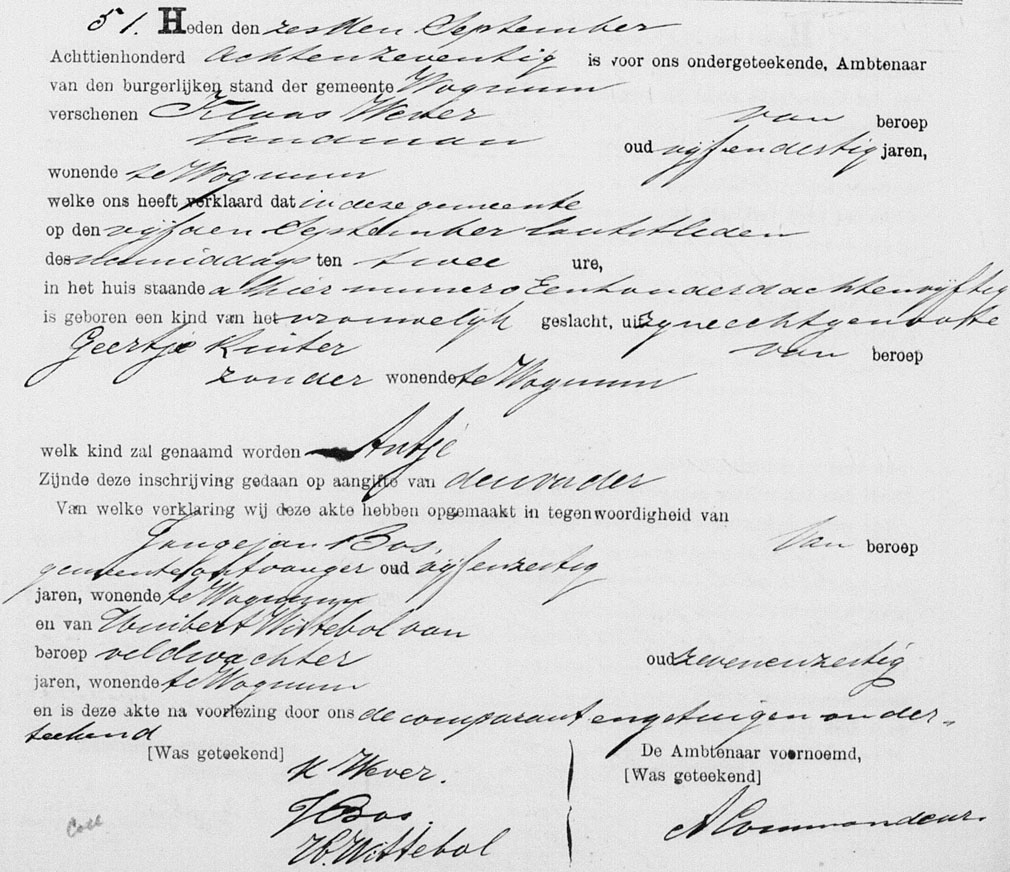 51. Heden den zesden September
Achttienhonderd achtenzeventig is voor ons ondergeteekende, Ambtenaar
van den burgerlijken stand der gemeente Wognum
verschenen Klaas Wever van beroep
landman oud vijfendertig jaren,
wonende te Wognum
welke ons heeft verklaard dat in deze gemeente
op den vijfden September laatstleden
des namiddags ten twee ure,
in het huis staande alhier numero Eenhonderdachtenvijftig
is geboren een kind van het vrouwelijk geslacht, uit zijne echtgenoote
Geertje Kuiter van beroep
zonder wonende te Wognum
welk kind zal genaamd worden Antje
Zijnde deze inschrijving gedaan op aangifte van den vader
Van welke verklaring wij deze akte hebben opgemaakt in tegenwoordigheid van
Jongejan Bos, van beroep
gemeente ontvanger oud vijfenzestig
jaren, wonende te Wognum
en van Huibert Wittebol van
beroep veldwachter oud zevenenzestig
jaren, wonende te Wognum
en is deze akte na voorlezing door ons de comparant en getuigen onder-
teekend
[Was geteekend] De Ambtenaar voornoemd,
K Wever. [Was geteekend]
J Bos.
H. Wittebol A Commandeur.
Coll